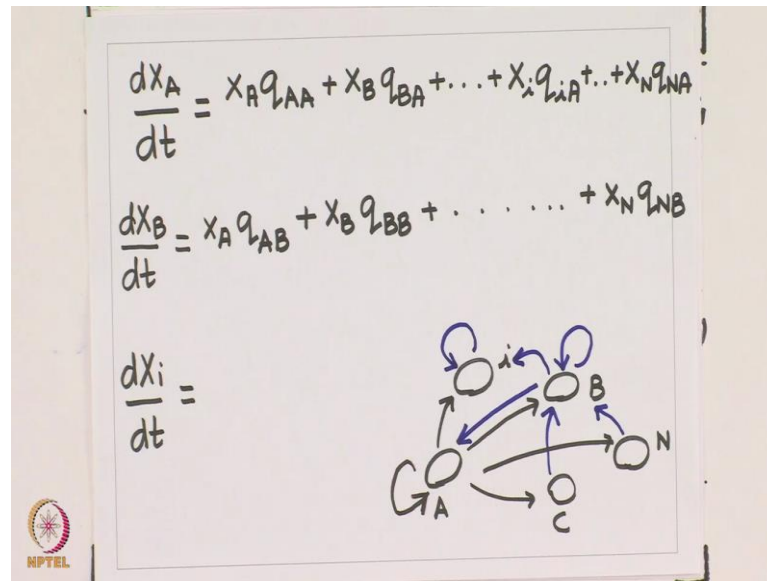 dx_A/dt = x_A q_AA + x_B q_BA + ... + x_i q_iA + .. + x_N q_NA
dx_B/dt = x_A q_AB + x_B q_BB + . . . . . . + x_N q_NB
dx_i/dt =
i
B
N
A
C
NPTEL